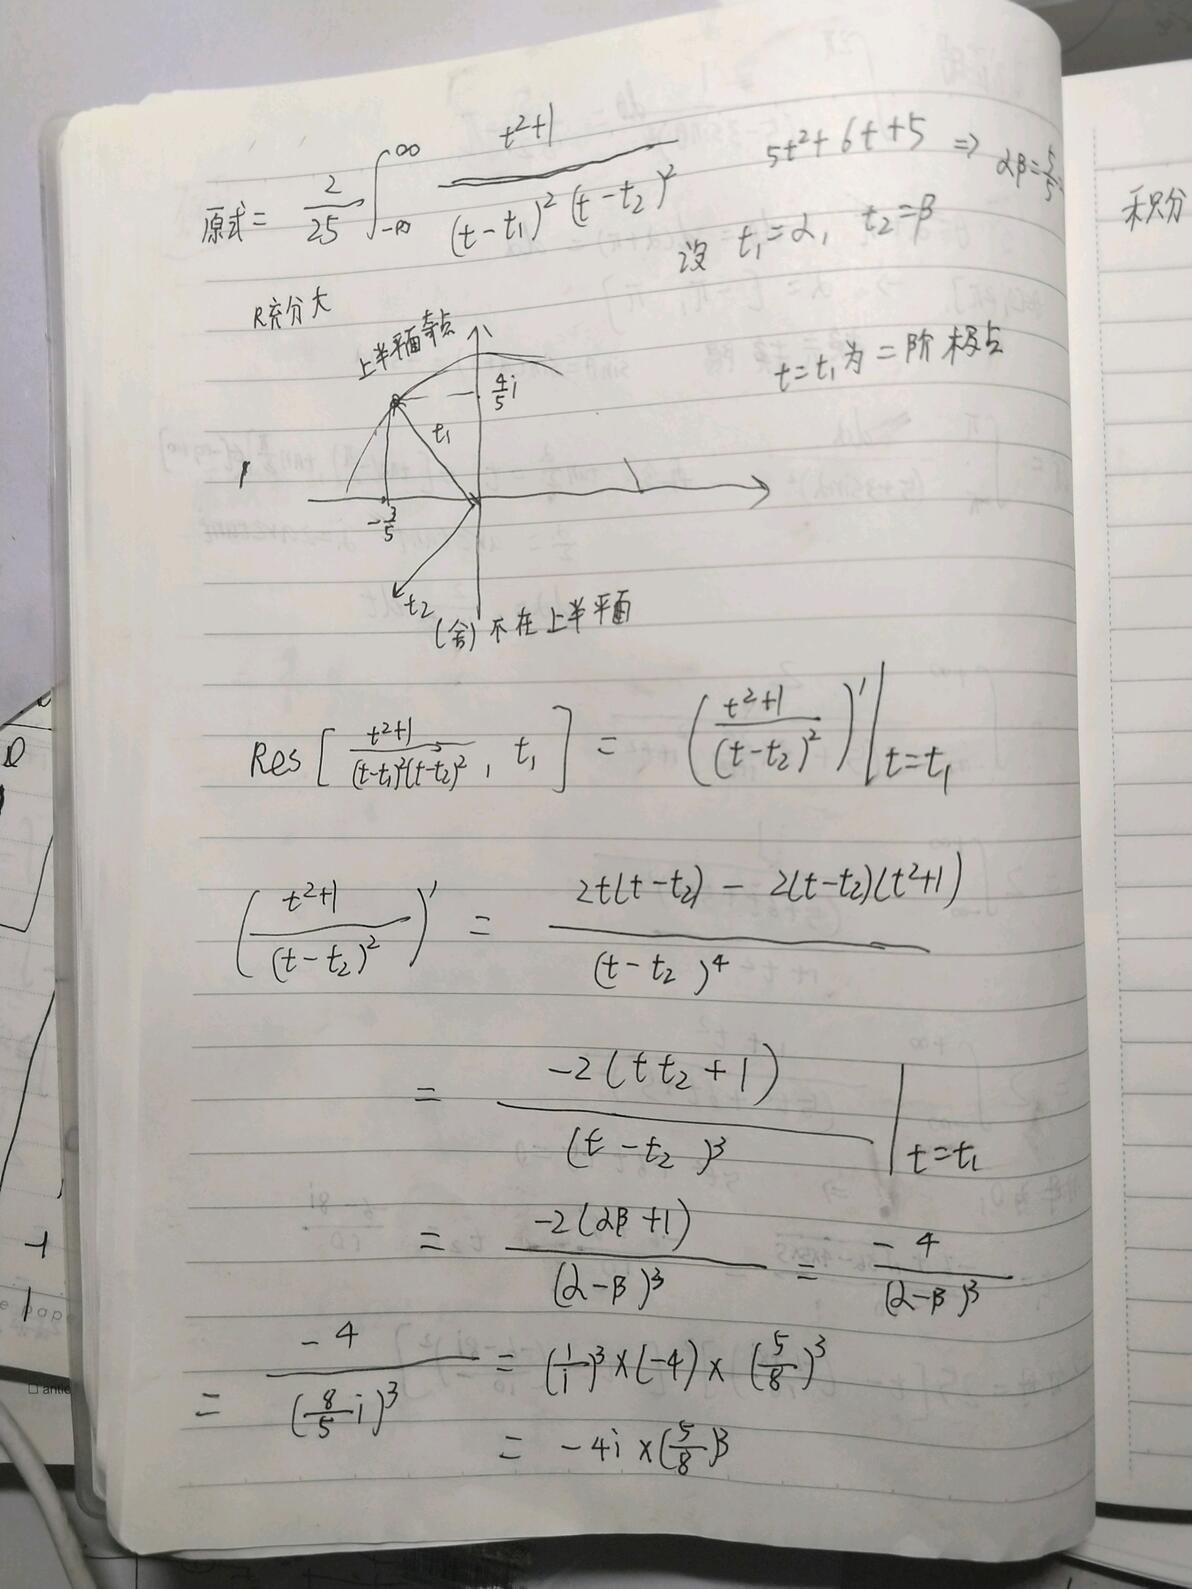 原式= \frac{2}{25} \int_{-\infty}^{\infty} \frac{t^2+1}{(t-t_1)^2 (t-t_2)^2}
5t^2+6t+5 ⇒ αβ=\frac{5}{5}
设 t_1=α, t_2=β
积分
R充分大
上半平面奇点
\frac{4}{5}i
t=t_1为二阶极点
t_1
-\frac{3}{5}
t_2
(舍) 不在上半平面
Res [ \frac{t^2+1}{(t-t_1)^2(t-t_2)^2}, t_1 ] = ( \frac{t^2+1}{(t-t_2)^2} )' |_{t=t_1}
( \frac{t^2+1}{(t-t_2)^2} )' = \frac{2t(t-t_2) - 2(t-t_2)(t^2+1)}{(t-t_2)^4}
= \frac{-2(tt_2+1)}{(t-t_2)^3} |_{t=t_1}
= \frac{-2(αβ+1)}{(α-β)^3} = \frac{-4}{(α-β)^3}
= \frac{-4}{(\frac{8}{5}i)^3} = (\frac{1}{i})^3 × (-4) × (\frac{5}{8})^3
= -4i × (\frac{5}{8})^3